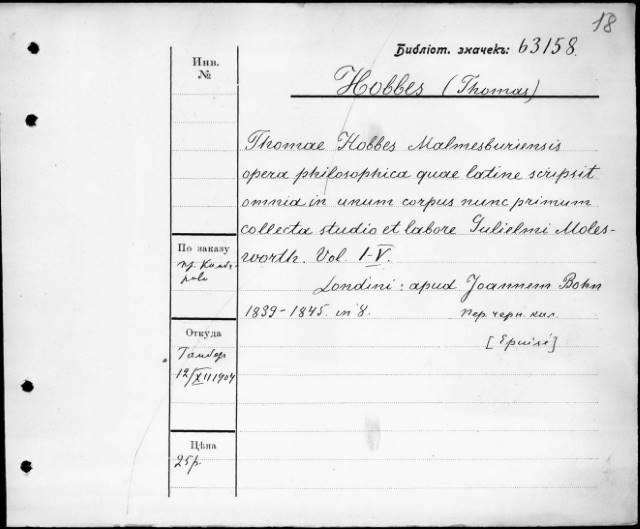 18
Библіот. значекъ: 63158
Инв.
№
Hobbes (Thomas)
Thomae Hobbes Malmesburiensis
opera philosophica quae latine scripsit
omnia in unum corpus nunc primum
collecta studio et labore Gulielmi Moles-
worth. Vol. I-V.
Londini: apud Joannem Bohn
1839-1845. in 8.
пер. черн. кал.
[Epuisé]
По заказу
пр.
Откуда
12/XII 1904
Цѣна
25р.